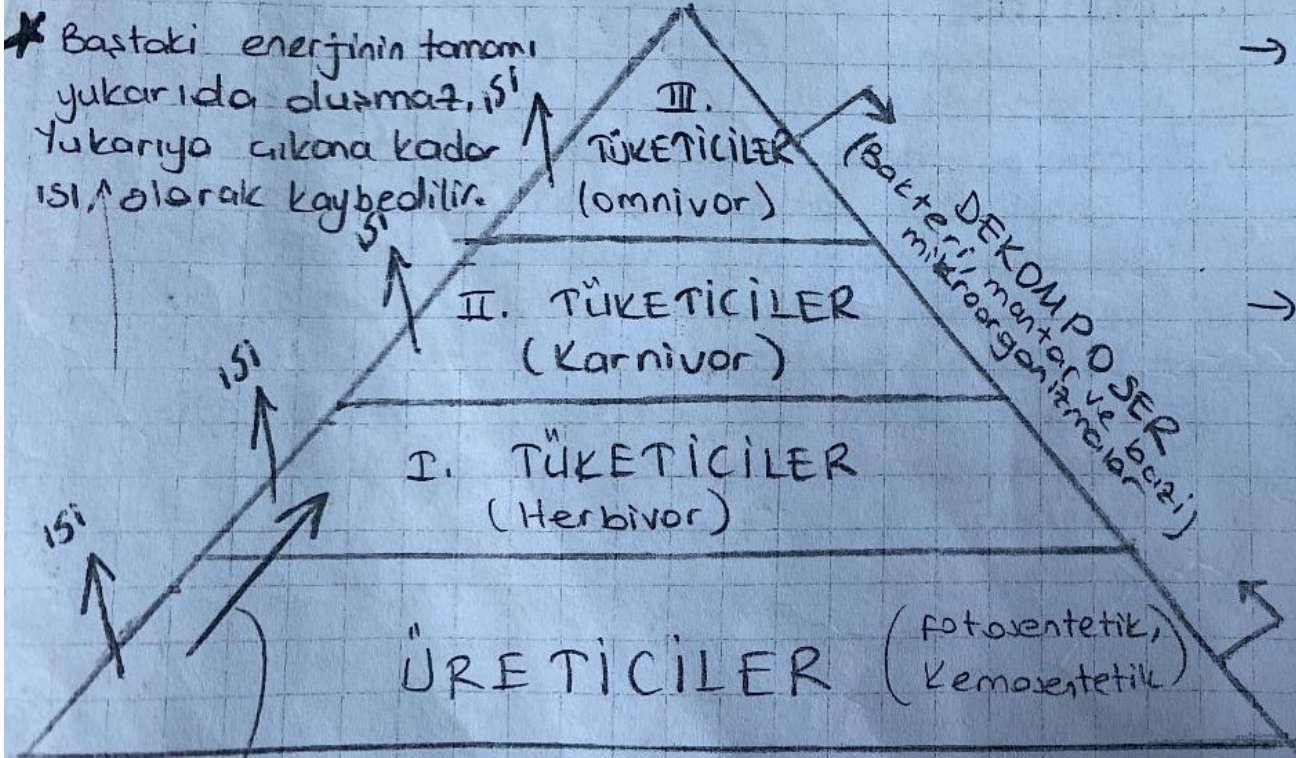 ★ Baştaki enerjinin tamamı
yukarıda oluşmaz,
Yukarıya çıkana kadar
ısı ↑ olarak kaybedilir.
→
→
ısı
ısı
ısı
ısı
III.
TÜKETİCİLER
(omnivor)
II. TÜKETİCİLER
(Karnivor)
I. TÜKETİCİLER
(Herbivor)
ÜRETİCİLER
(fotosentetik,
Kemosentetik)
DEKOMPOSER
(Bakteri, mantar ve bazı
mikroorganizmalar)